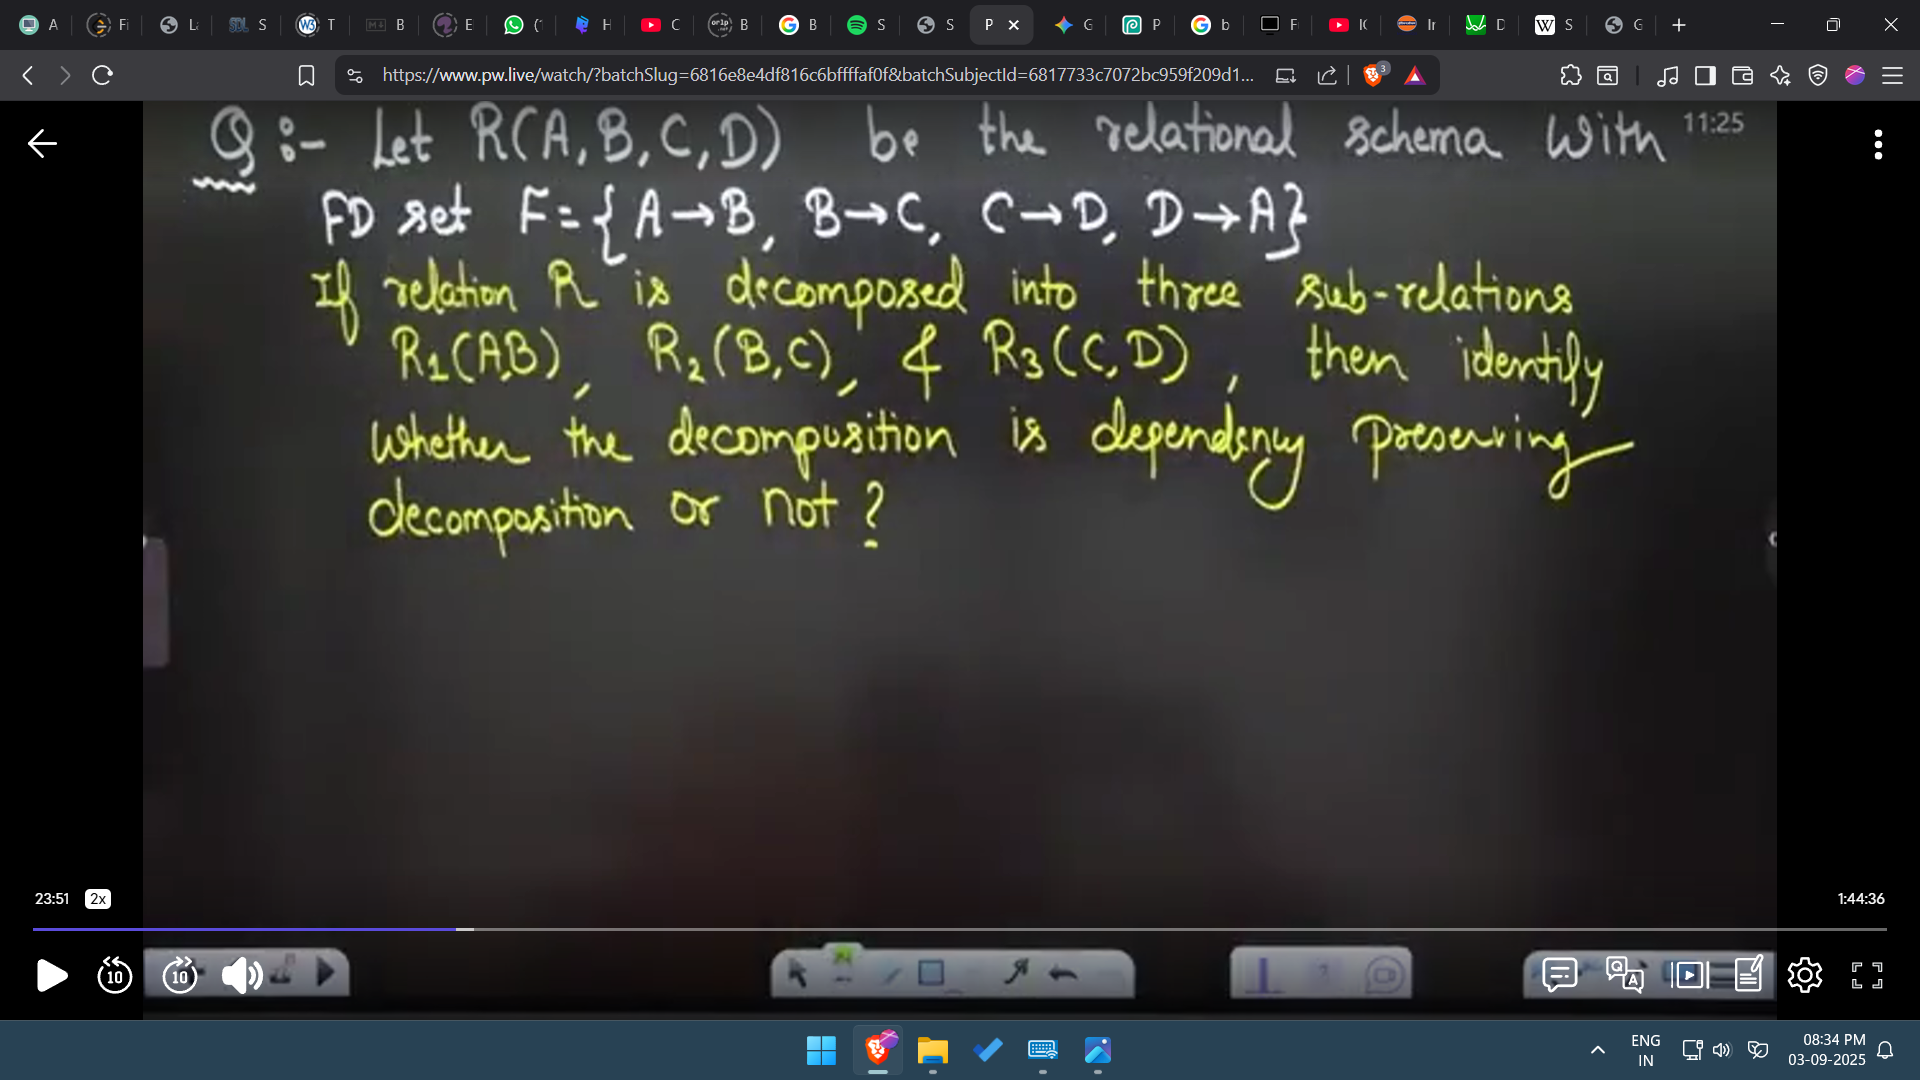 A Fi La SQL S T B E (1 H C B B S S P G P b F IC Ir D S G
https://www.pw.live/watch/?batchSlug=6816e8e4df816c6bffffaf0f&batchSubjectId=6817733c7072bc959f209d1... 3
11:25
Q :- Let R(A,B,C,D) be the relational schema With
FD set F={A→B, B→C, C→D, D→A}
If relation R is decomposed into three sub-relations
R1(A,B), R2(B,C), & R3(C,D), then identify
whether the decomposition is dependency preserving
decomposition or not?
23:51 2x 1:44:36
10 10
ENG 08:34 PM
IN 03-09-2025